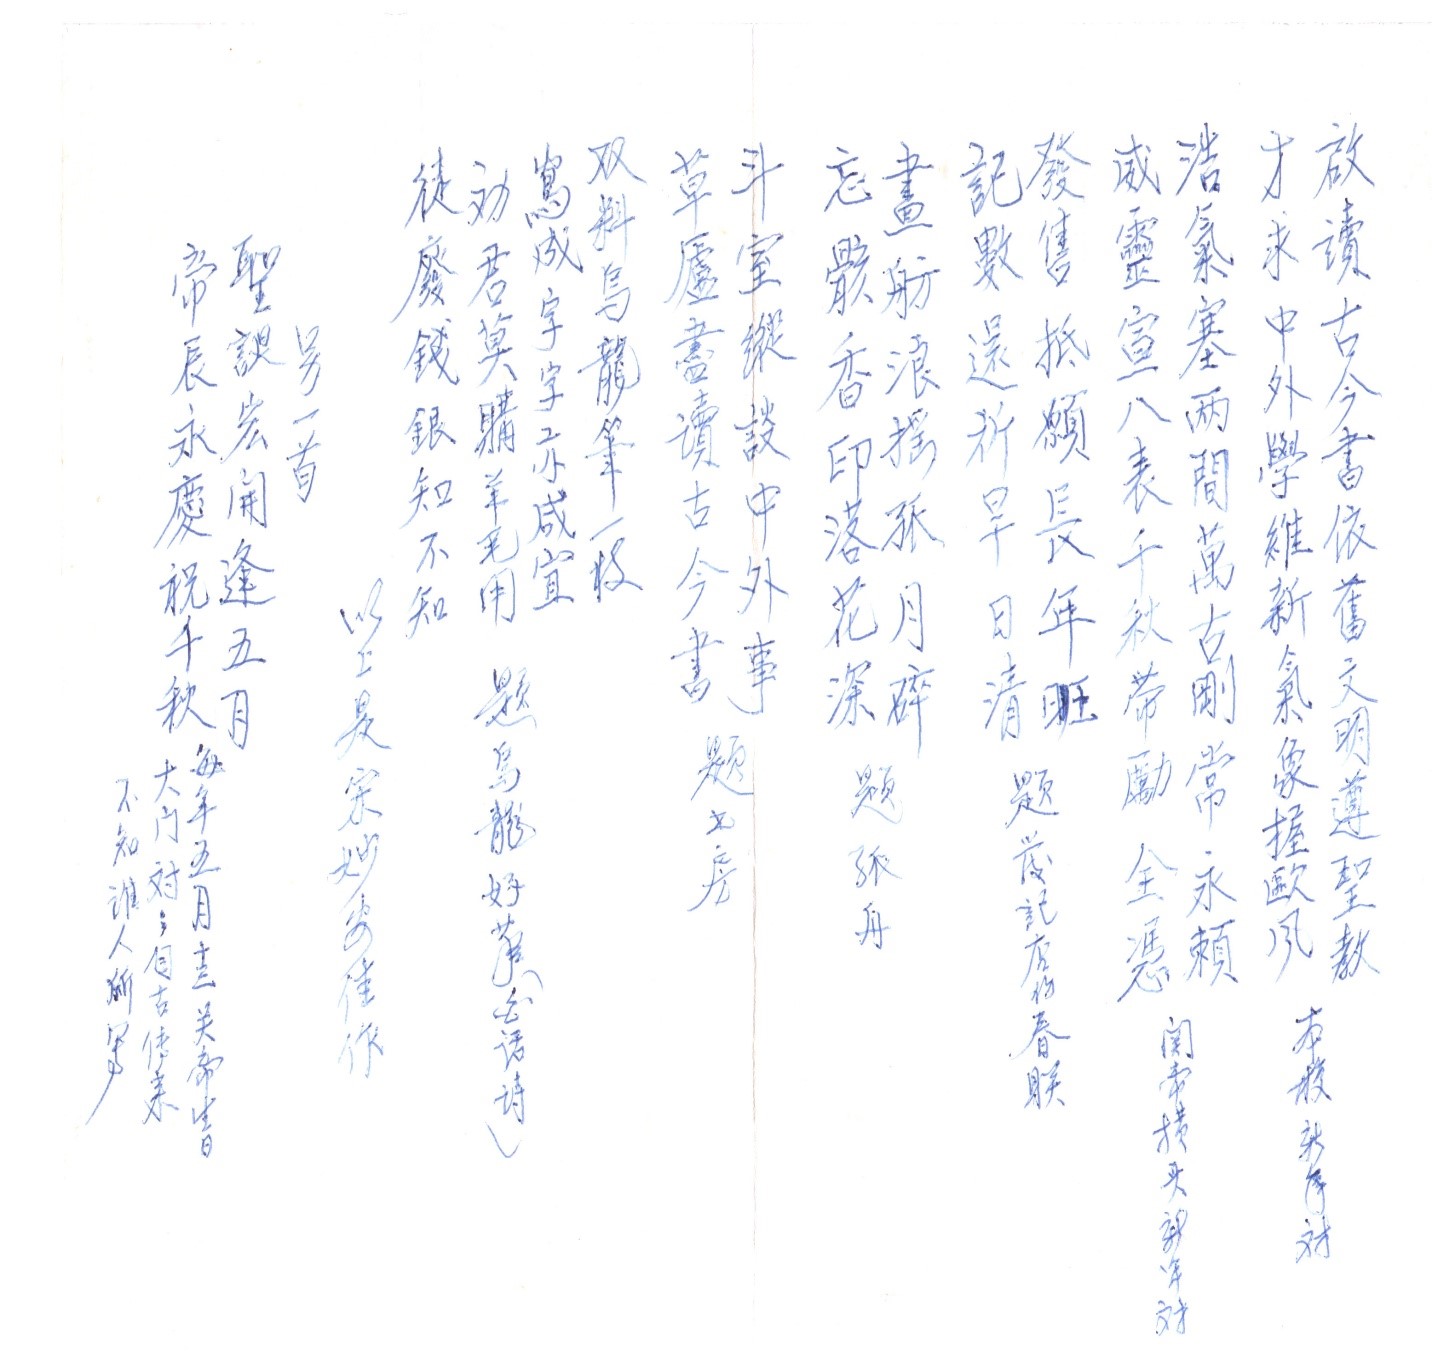 啟讀古今書依舊文明遵聖教
才求中外學維新氣象握歐風
本校新年対
浩氣塞兩間萬古剛常永賴
威靈宣八表千秋帶勵全憑
関帝横头新年対
發售抵願長年旺
記數還祈早日清
題茂記店的春联
畫舫浪摇孤月碎
忘骸香印落花深
題孤舟
斗室縱談中外事
草廬盡讀古今書
題书房
双料烏龍筆一枝
寫成字字亦咸宜
劝君莫購羊毛用
徒廢錢銀知不知
題烏龍好筆(白话诗)
以上是宋妙安佳作
另一首
聖誕宏開逢五月
帝辰永慶祝千秋
每年五月十三关帝生日
大门対之自古传来
不知谁人所写